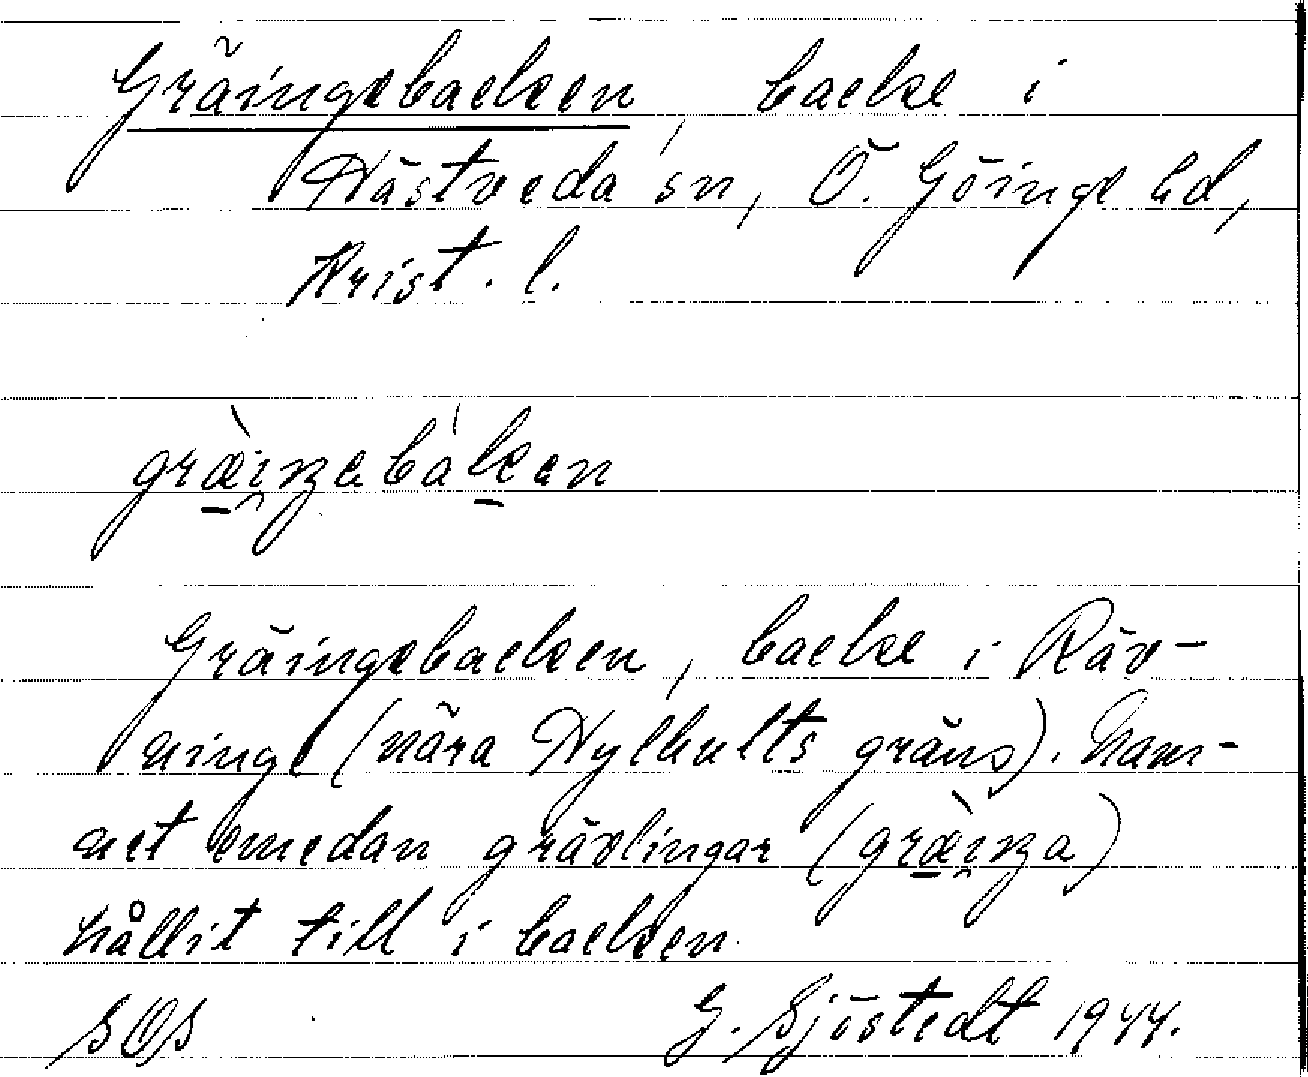 Gräingebacken, backe i
Hästveda sn, Ö. Göinge hd,
Krist. l.
Gräingebacken, backe i Röv-
ninge (nära Hylhults gräns). Nam-
net emedan grävlingar
hållit till i backen.
SOS G. Sjöstedt 1944.